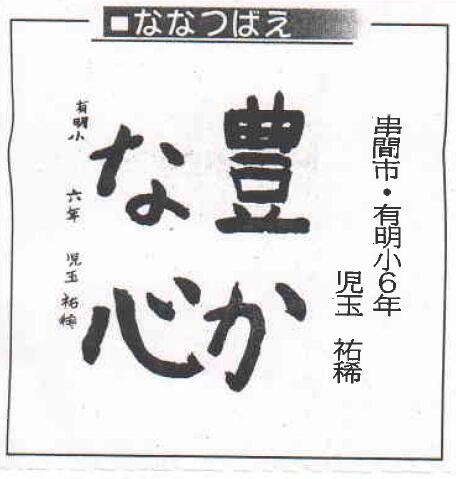 ■ななつばえ
串間市・有明小6年
児玉 祐稀
豊か
な心
有明小 六年 児玉 祐稀